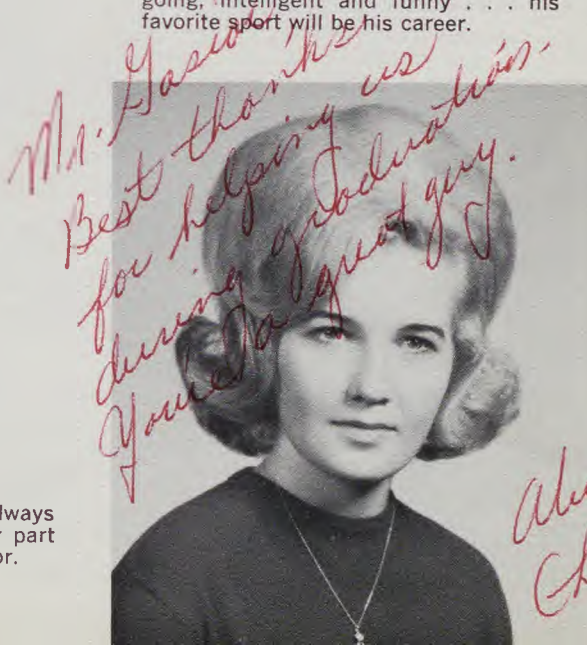 going, intelligent and funny . . . his
favorite sport will be his career.
Mr.
Best thanks
for helping us
during graduation.
You're a great guy.
lways
part
or.